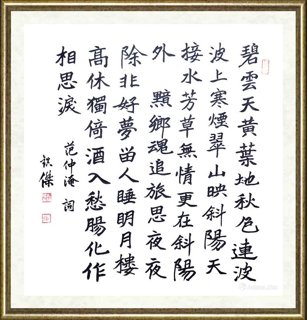 碧雲天黃葉地秋色連波
波上寒煙翠山映斜陽天
接水芳草無情更在斜陽
外黯鄉魂追旅思夜夜
除非好夢留人睡明月樓
高休獨倚酒入愁腸化作
相思淚
范仲淹詞
傑